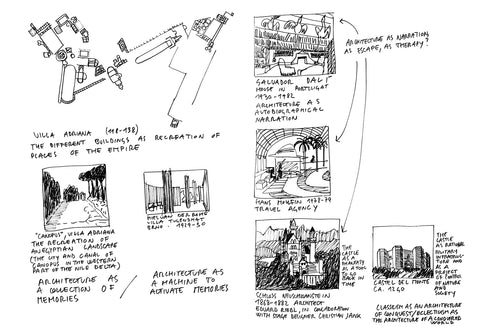 VILLA ADRIANA (118-138)
THE DIFFERENT BUILDINGS AS RECREATION OF
PLACES OF THE EMPIRE
"CANOPUS", VILLA ADRIANA
THE RECREATION OF
AN EGYPTIAN LANDSCAPE
(THE CITY AND CANAL OF
CANOPUS IN THE WESTERN
PART OF THE NILE DELTA)
ARCHITECTURE AS
A COLLECTION OF
MEMORIES
/
MIES VAN DER ROHE
VILLA TUGENDHAT
BRNO. 1929-30
ARCHITECTURE AS
A MACHINE TO
ACTIVATE MEMORIES
ARCHITECTURE AS NARRATION,
AS ESCAPE, AS THERAPY?
SALVADOR DALÍ
HOUSE IN PORTLLIGAT
1930-1982
ARCHITECTURE AS
AUTOBIOGRAPHICAL
NARRATION
HANS HOLLEIN 1978-79
TRAVEL AGENCY
THE
CASTLE
AS A
AS A TOOL
TO GO
BACK IN
TIME
SCHLOSS NEUSCHWANSTEIN
1868-1882 ARCHITECT
EDUARD RIEDEL, IN COLLABORATION
WITH STAGE DESIGNER CHRISTIAN JANK
THE
CASTLE
AS RATIONAL
MILITARY
INFRASTRUC-
TURE AND
AS A
PROJECT
OF CONTROL
OF NATURE
AND
SOCIETY
CASTEL DEL MONTE
CA. 1240
CLASSICISM AS AN ARCHITECTURE
OF CONQUEST/ECLECTICISM AS
THE ARCHITECTURE OF A CONQUERED
WORLD